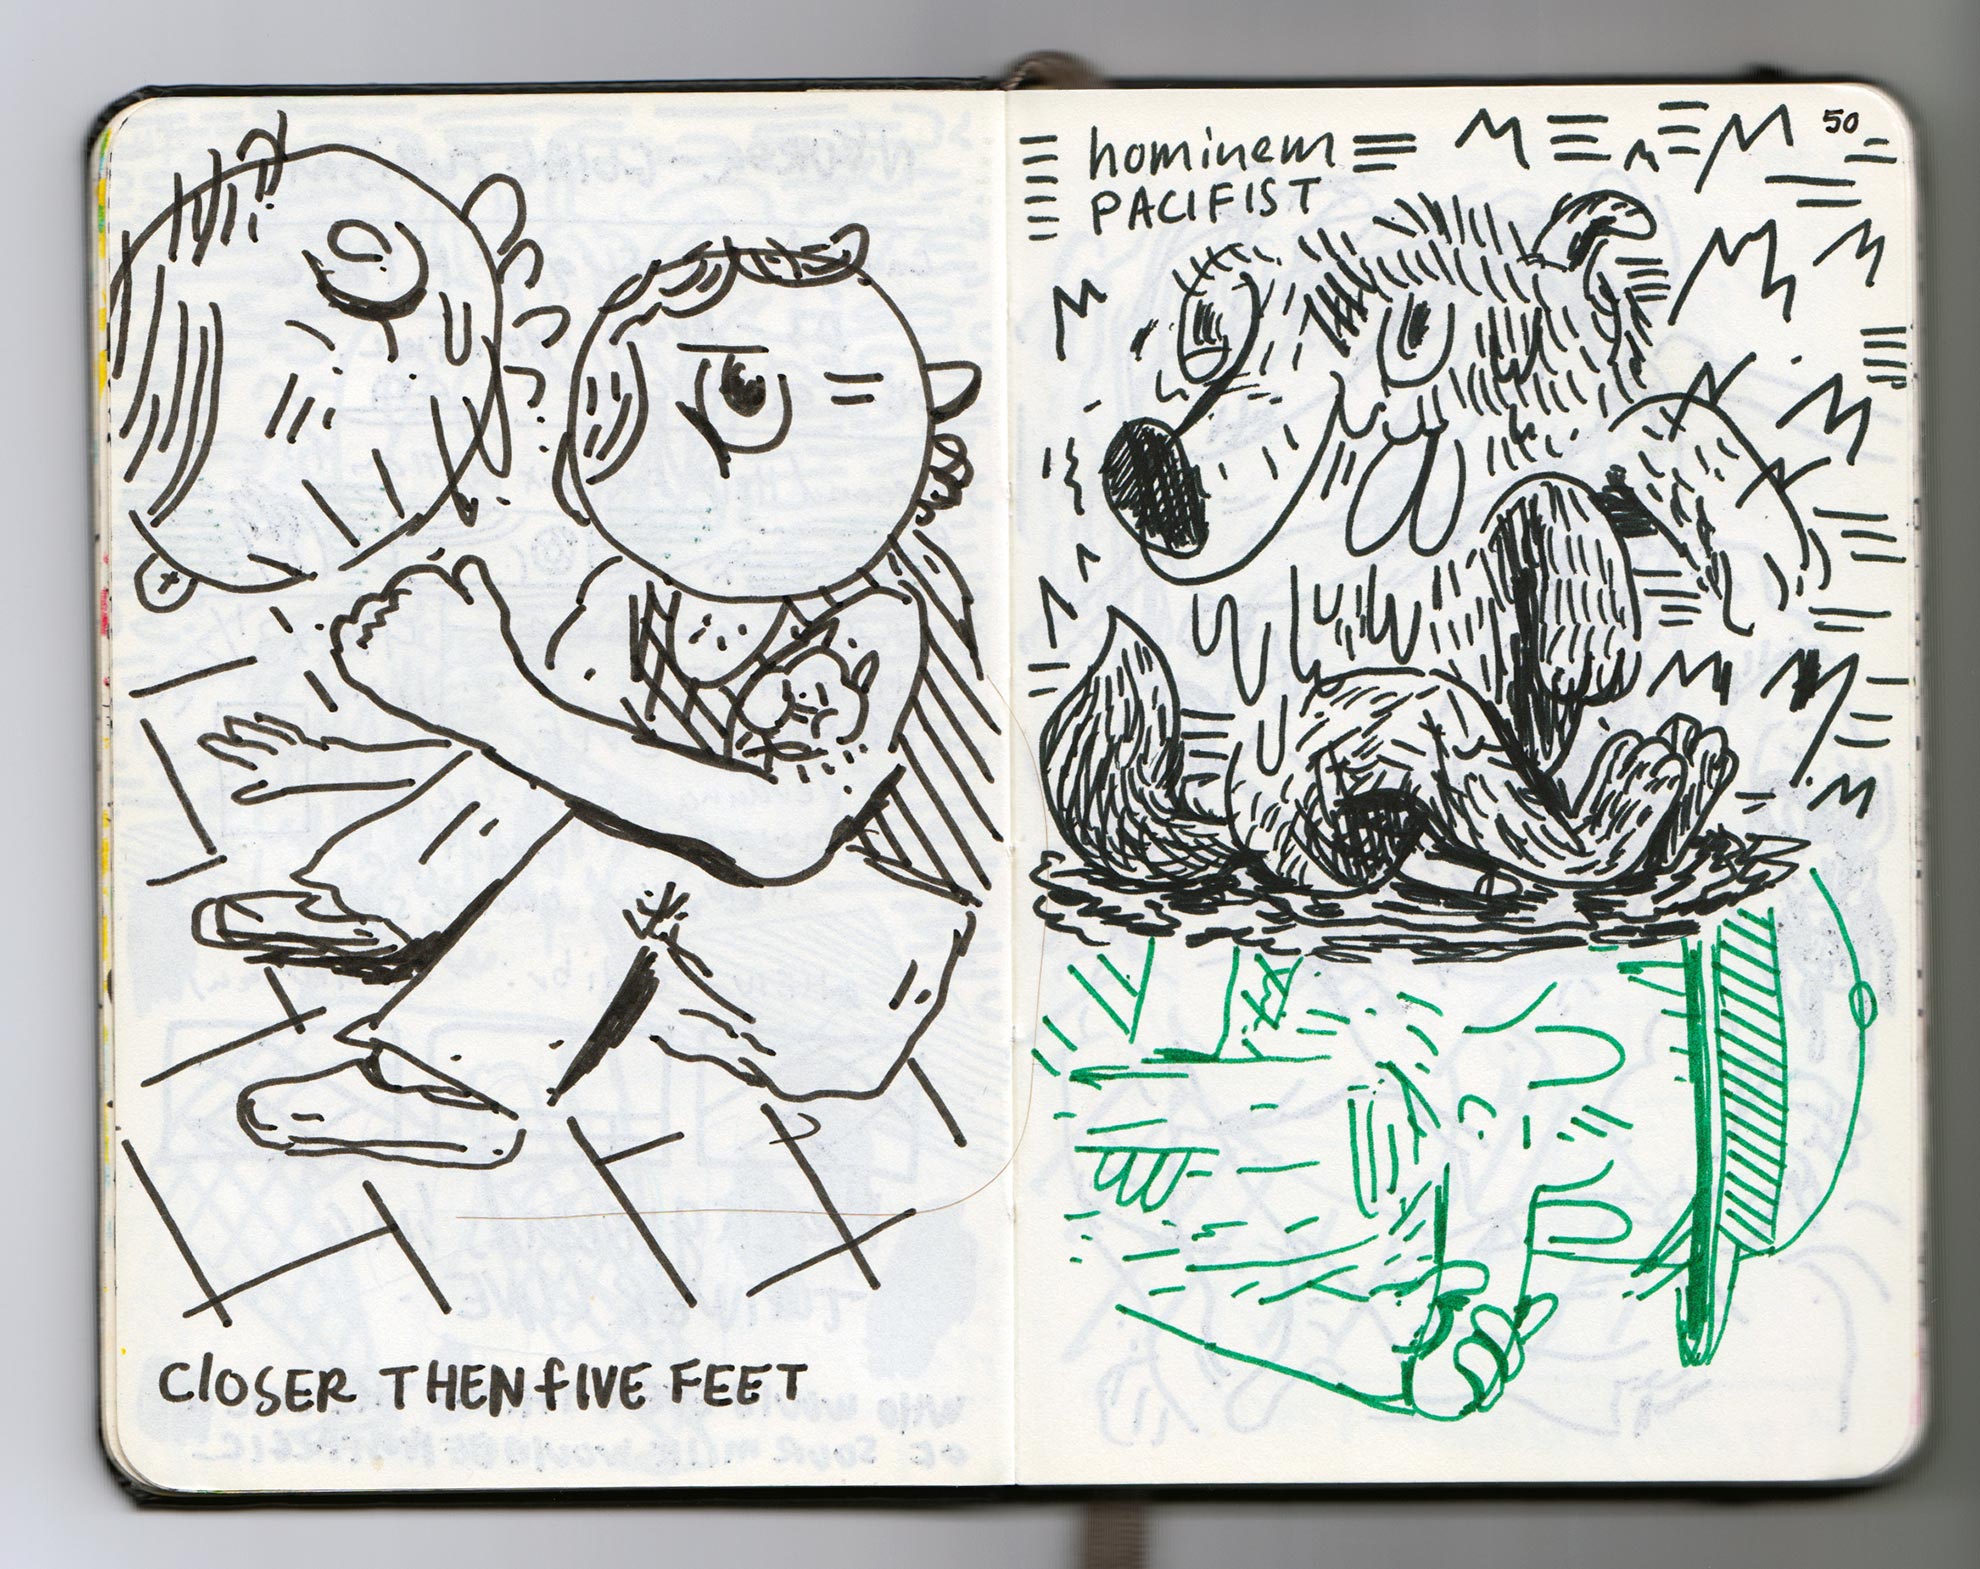 CLOSER THEN FIVE FEET
50
hominem
PACIFIST